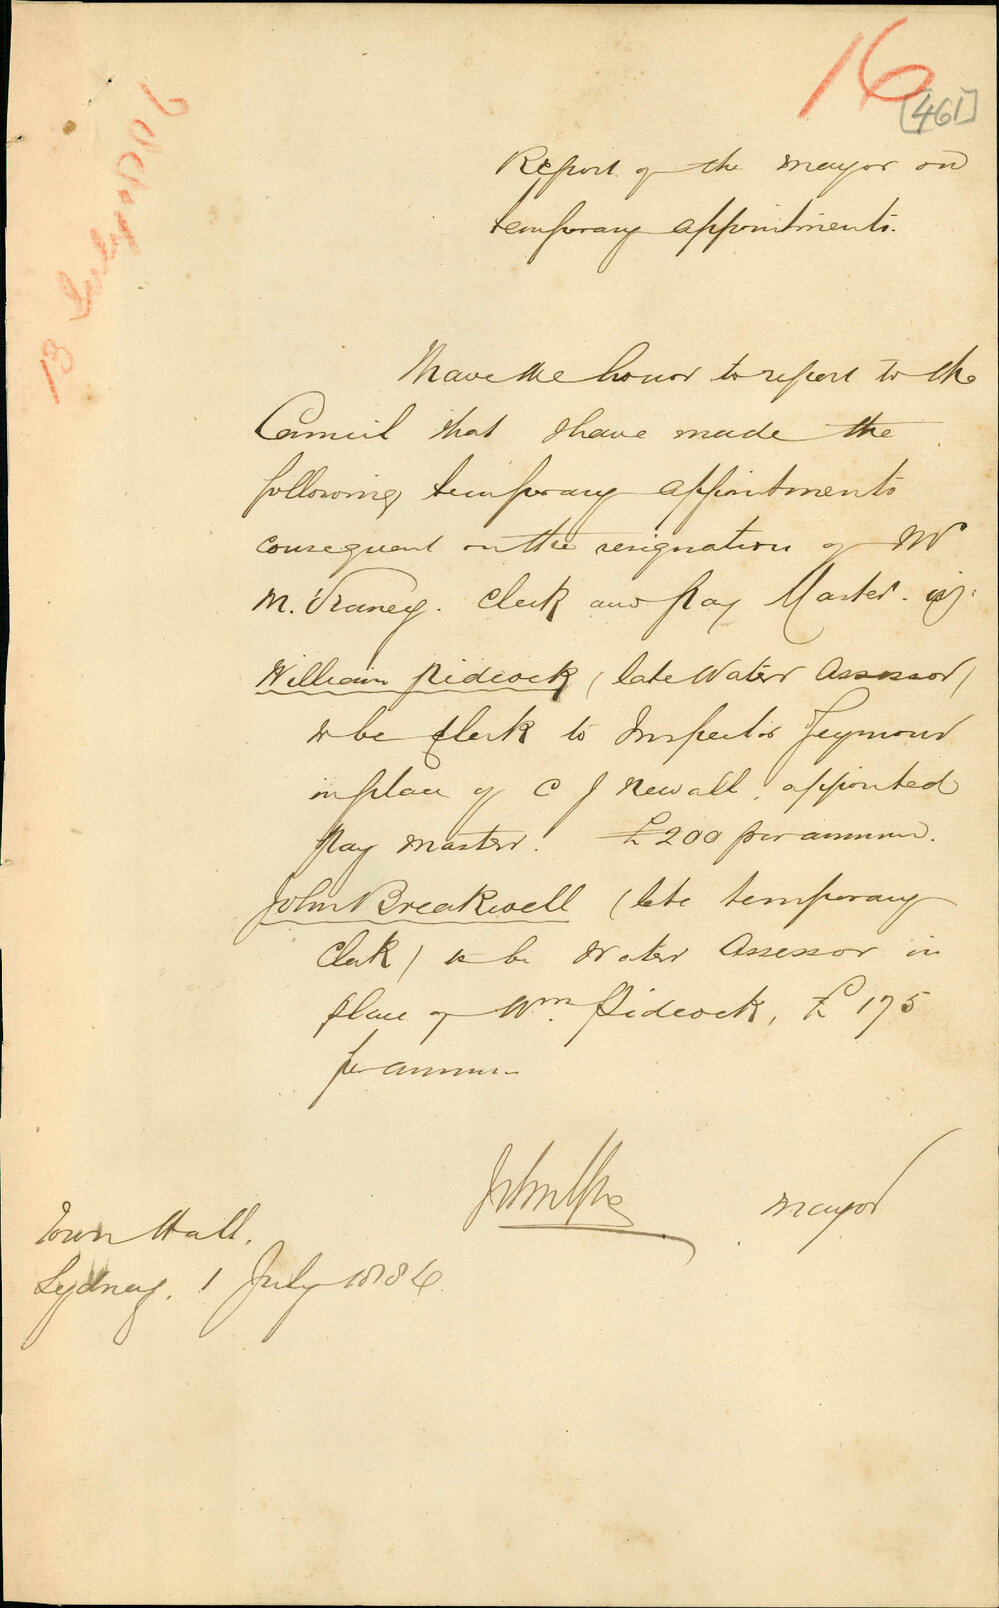 16
[461]
13 July 1886
Report of the Mayor on
temporary appointments.
I have the honor to report to the
Council that I have made the
following temporary appointments
consequent on the resignation of Mr
M. Craney. Clerk and Pay Master. viz:
William Pidcock (late Water Assessor)
to be Clerk to Inspector Seymour
in place of C J Newall, appointed
Pay Master. £200 per annum.
John Breakwell (late temporary
Clerk) to be Water Assessor in
place of Wm. Pidcock, £175
per annum
John Young
Mayor
Town Hall.
Sydney. 1 July 1886